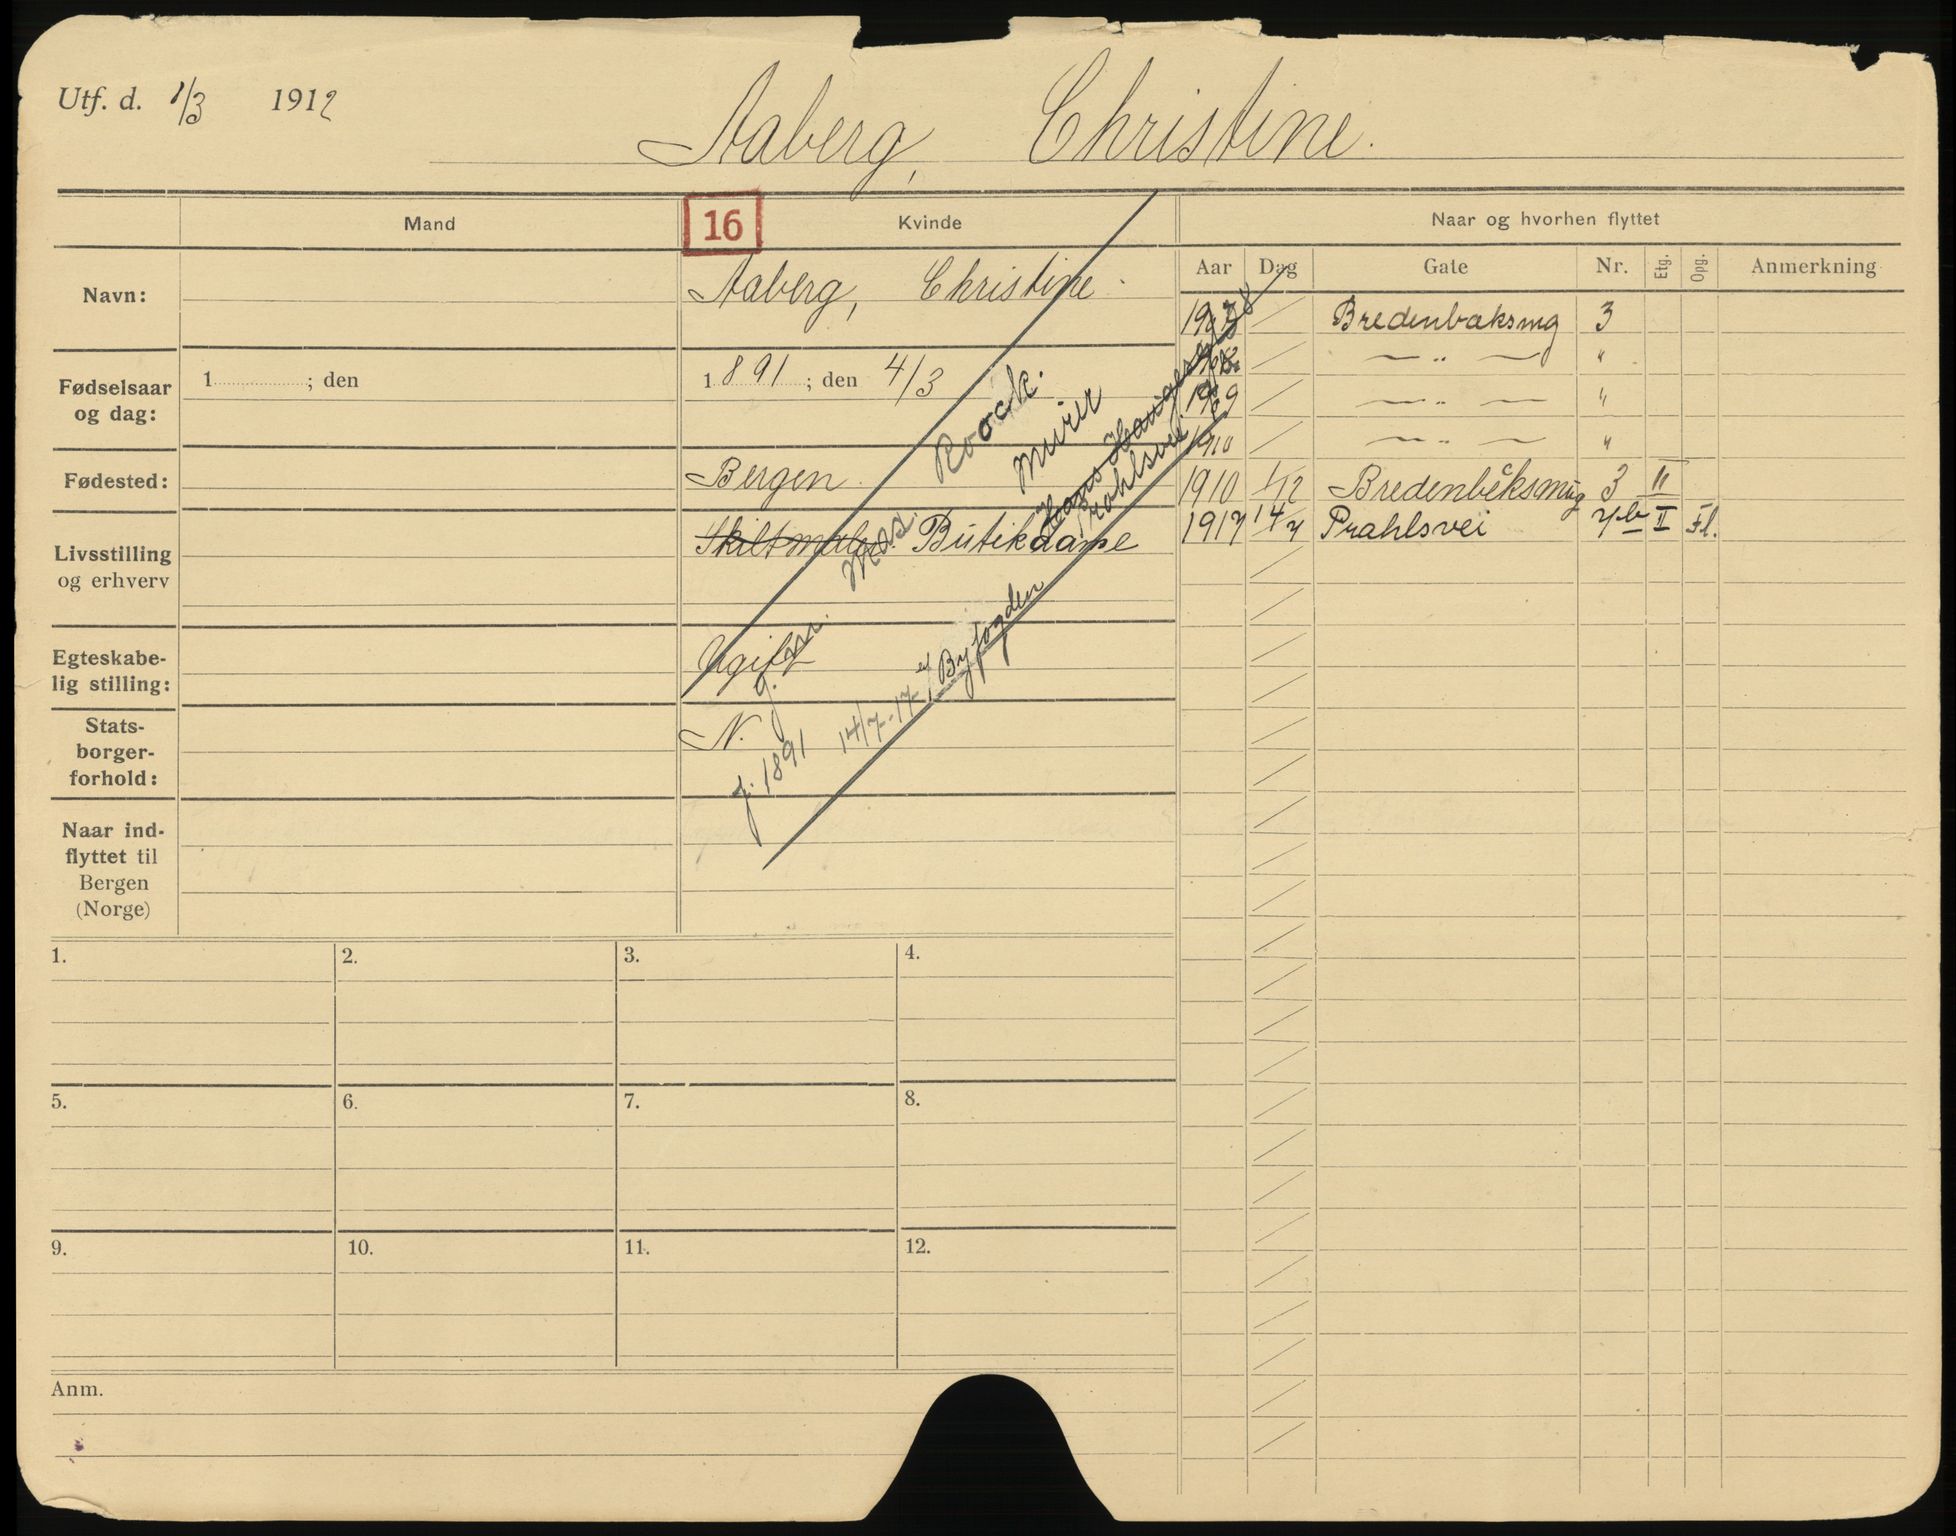 Utf. d. 1/3 1912
Aaberg, Christine.
Mand
16
Kvinde
Naar og hvorhen flyttet
Aar
Dag
Gate
Nr.
Etg.
Opg.
Anmerkning
Navn:
Aaberg, Christine.
Fødselsaar
og dag:
1 ; den
1891 ; den 4/3
Fødested:
Bergen.
Livsstilling
og erhverv
Skiltmaler. Butikdame
Egteskabe-
lig stilling:
Ugift
Stats-
borger-
forhold:
N.
Naar ind-
flyttet til
Bergen
(Norge)
g. Max Roock.
f. 1891 murer
14/7-17 Byfogden
Prahlsvei
Bredenbæksmg 3
— " — "
1909 — " — "
1910 — " — "
1910 1/12 Bredenbeksmug 3 II
1917 14/7 Prahlsvei 7b II Fl.
1.
2.
3.
4.
5.
6.
7.
8.
9.
10.
11.
12.
Anm.